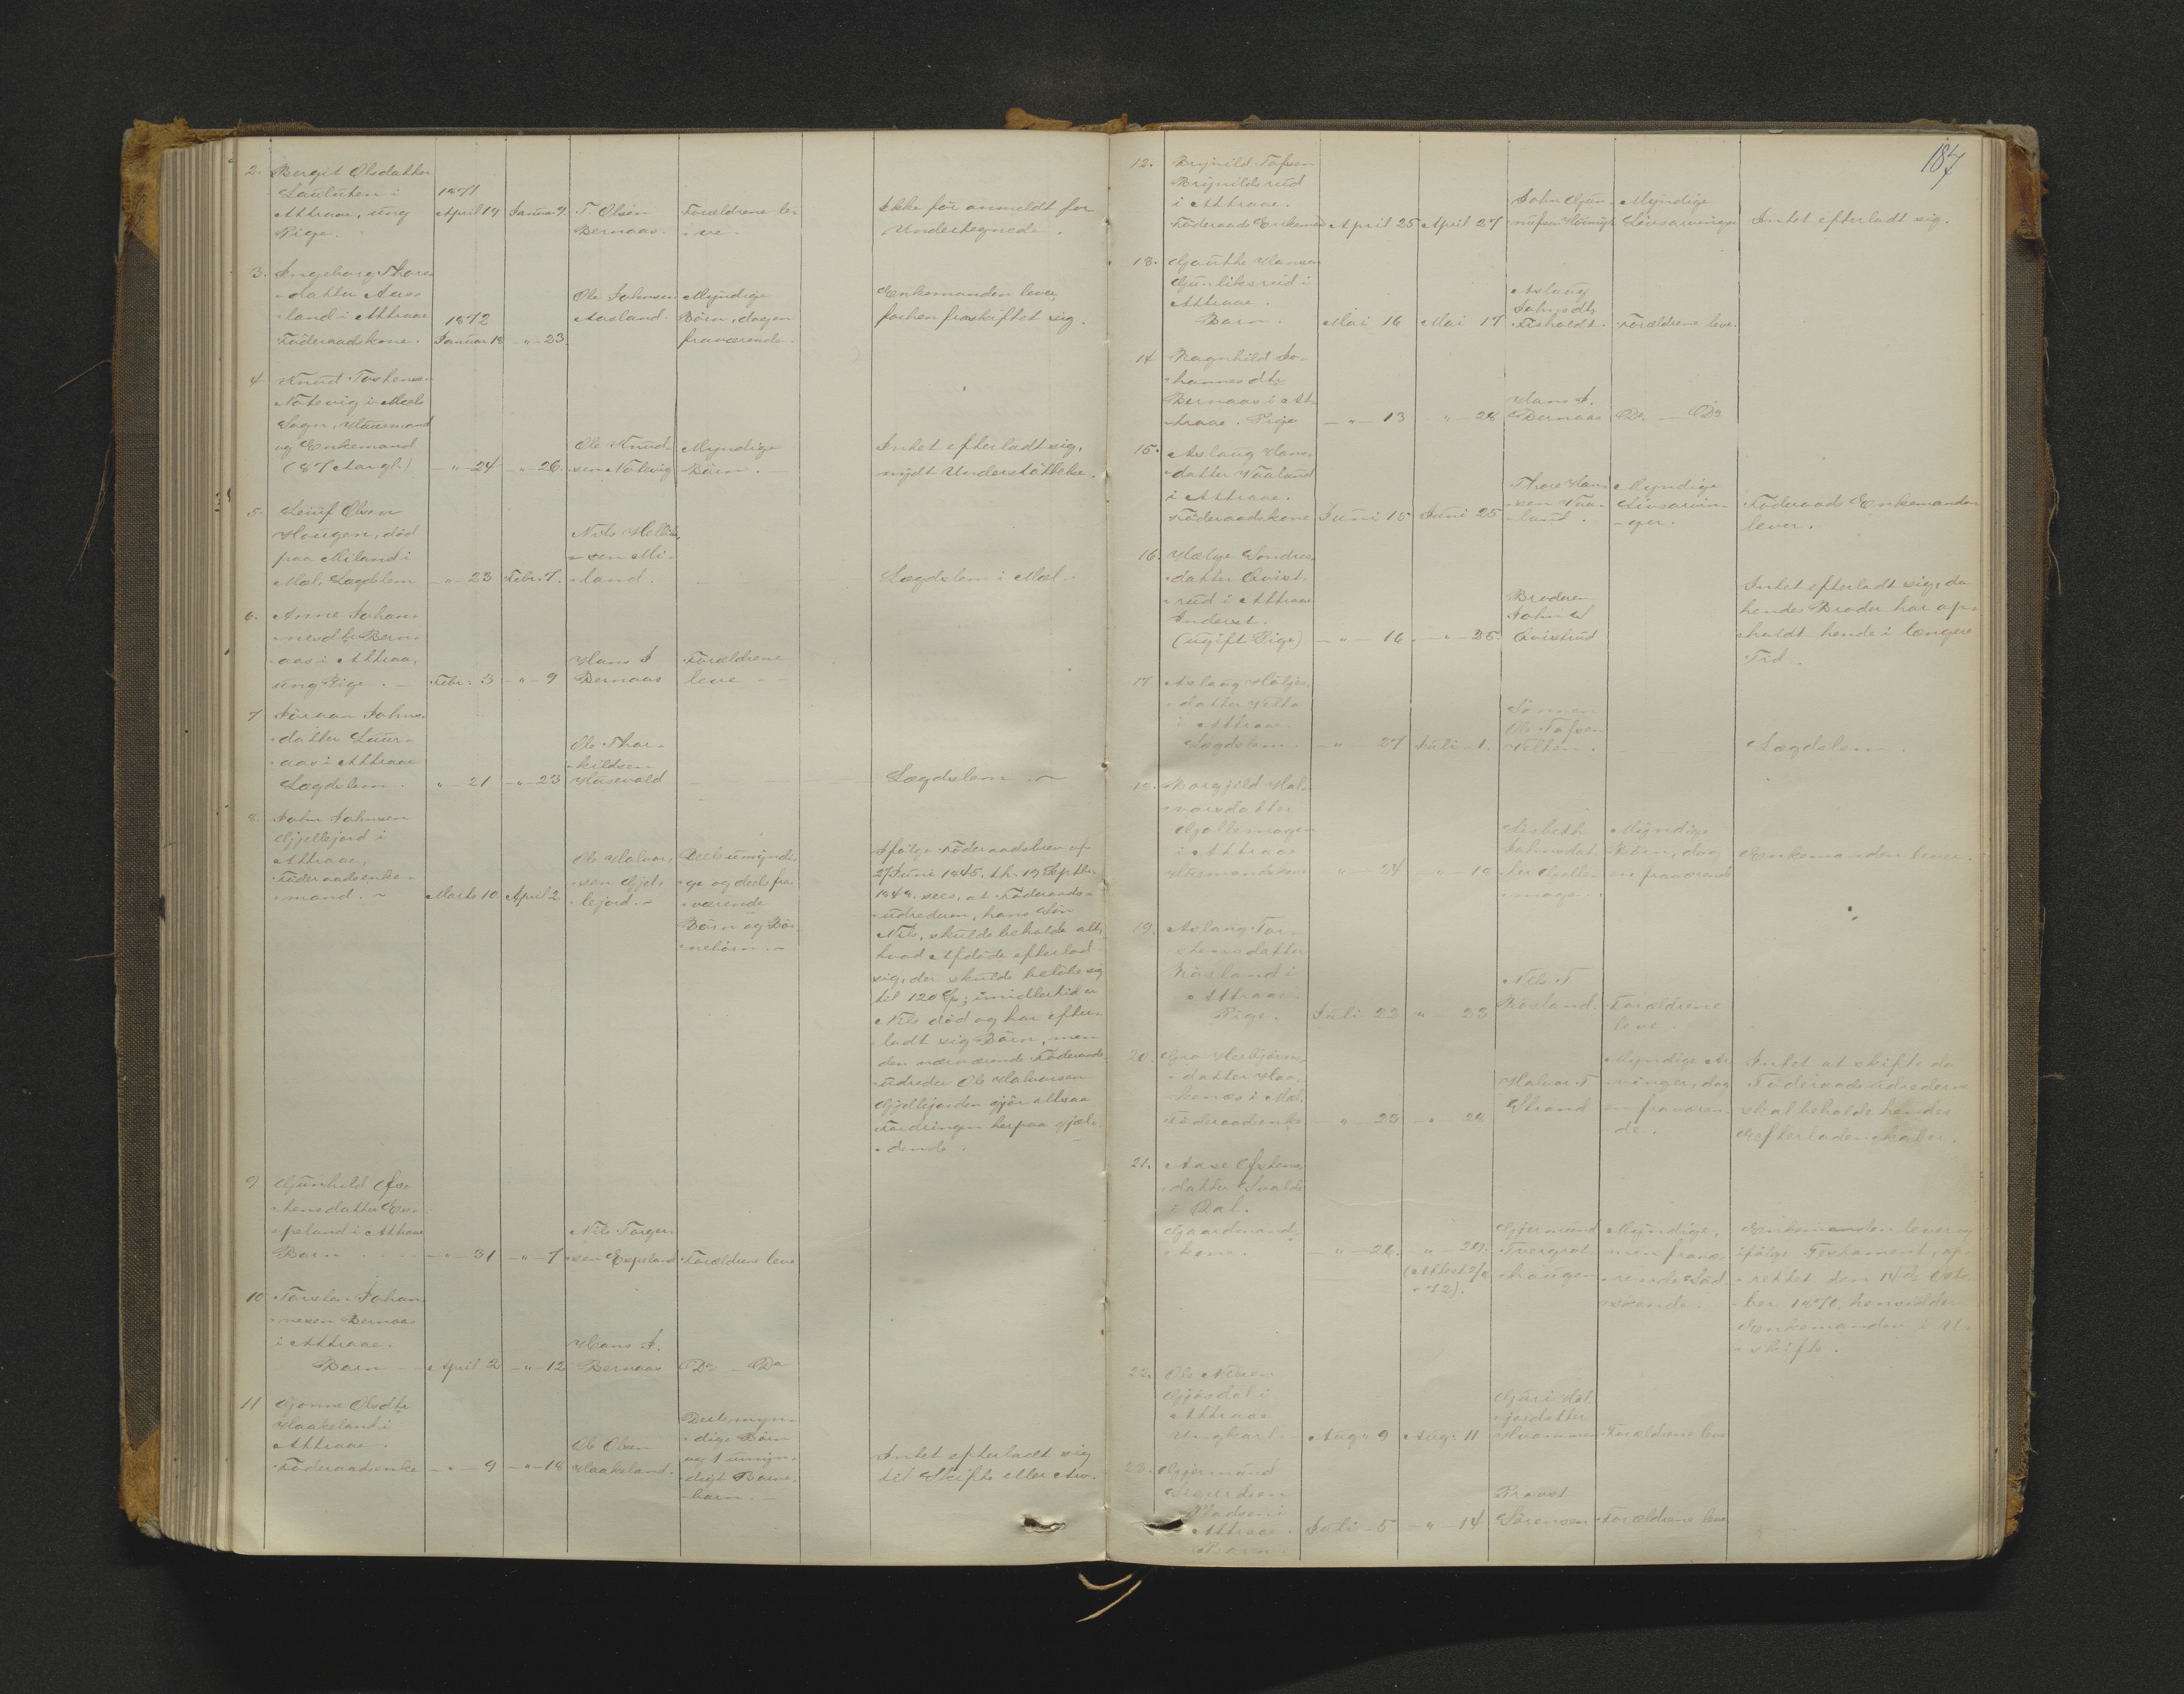 2. Bergit Olsdatter
Lauluten i
Attraae, ung
Pige.
1871
April 19 Januar 9.
T. Olsen
Bernaas.
Forældrene le-
-ve.
Ikke før anmeldt for
Undertegnede.
3. Ingeborg Thors-
-datter Aas-
-land i Attraae
Föderaadskone.
1872
Januar 18 -"- 23.
Ole Johnsen
Aasland.
Myndige
Börn, dog en
fraværende.
Enkemanden lever,
forhen fraskiftet sig.
4 Knud Tostens.
Nötevig i Mæls
Sogn, Huusmand
og Enkemand
(87 Aar gl.)
-"- 24 -"- 26.
Ole Knud-
sen Nötevig
Myndige
Börn.
Intet efterladt sig,
nydt Understöttelse.
5. Leiuf Olsen
Haugen, död
paa Miland i
Mæl, Lægdslem
-"- 23 Febr. 7.
Nils
-sen Mi-
-land.
Lægdslem i Mæl.
6. Anne Johan-
-nesdtr Bern-
-aas i Attraa,
ung Pige.
Febr. 3 -"- 9
Hans J
Bernaas
Forældrene
leve
7 Jöraan Johns-
-datter Luur-
-aas i Attraae
Lægdslem.
" 21 -"- 23
Ole Thor-
-kildsen
Husevold
Lægdslem.
8. John Johnsen
Gjellejord i
Attraae,
Föderaadsenke-
-mand.
Marts 10 April 2.
Ole Halvor-
-sen Gjel-
-lejord.
Deels umyndi-
-ge og deels fra-
-værende
Börn og Bör-
-nebörn.
Ifölge Föderaadsbrev af
27 Juni 1845, th. 19 Septbr
1848, sees, at Föderaads-
-udrederen, hans Sön
Nils, skulde beholde alt,
hvad Afdöde efterlod
sig, der skulde belöbe sig
til 120 Sp; imidlertid er
Nils död og har efter-
-ladt sig Börn, men
den nærværende Föderaads-
-udreder Ole Halvorsen
Gjellejorden gjör altsaa
Fordringen herpaa gjæl-
-dende.
9 Gunhild Øys-
-tensdatter Es-
-peland i Attraae
Barn
-"- 31 -"- 7
Nils Torger-
-sen Espeland
Forældrene leve
10 Torsten Johan-
-nesen Bernaas
i Attraae.
Barn
April 2 -"- 12
Hans J.
Bernaas
Do - Do
11 Gjonne Olsdtr
Haakeland i
Attraae.
Föderaadsenke
-"- 9 -"- 18
Ole Olsen
Haakeland.
Deels myn-
-dige Börn
og 1 umyn-
-digt Barne-
-barn.
Intet efterladt sig
til Skifte eller Arv.
187
12. Brynild Tofsen
Brynildsrud
i Attraae.
Föderaads Enkemand April 25 April 27
John Gun-
-nufsen
Myndige
Livsarvinger
Intet efterladt sig.
13. Gauthe Hansen
Gunliksrud i
Attraae.
Barn.
Mai 16 Mai 17
Aslaug
Johnsdtr
Fisholdt.
Forældrene leve.
14 Ragnhild Jo-
-hannesdtr
Bernaas i At-
-traae. Pige
-"- 13 " 28
Hans J.
Bernaas
Do - Do
15. Aslaug Hans-
-datter Vaalund
i Attraae.
Föderaadskone Juni 15 Juni 25
Thore Han-
-sen Vaa-
-lund.
Myndige
Livsarvin-
-ger.
Föderaads Enkemanden
lever.
16. Hælge Sondres-
-datter Qvist-
-rud i Attraae
Inderst.
(ugift Pige)
-"- 16 -"- 25.
Broderen
John S
Qvistrud
Intet efterladt sig, da
hendes Broder har op-
-holdt hende i længere
Tid.
17 Aslaug Höljes-
-datter Velta
i Attraae
Lægdslem.
-"- 27 Juli 1.
Sönnen
Ole Tofsen
Velten.
Lægdslem.
18. Borgjild Hal-
-vorsdatter
Gollemogen
i Attraae
Husmandskone
" 24 -"- 10
Lisbeth
Johnsdat-
-ter Golle-
-moge.
Myndige
Börn, dog
en fraværende
Enkemanden lever.
19. Aslaug Tor-
-stensdatter
Röisland i
Attraae.
Pige.
Juli 22 " 23
Nils T
Röisland.
Forældrene
leve.
20. Gro Herbjörns-
-datter Haa-
-kenæs i Mæl.
Föderaadsenke
" 25 -"- 28
Halvor T
Strand
Myndige Ar-
-vinger, dog
en fraværen-
-de.
Intet at skifte da
Föderaadsudrederen
skal beholde hendes
Efterladenskaber.
21. Aase Østens-
-datter Svalde
i Dal.
Gaardmands-
-kone.
" 20. -"- 29.
-72).
Gjermund
Tvergrot-
-haugen
Myndige,
men fravæ-
-rende Söd-
-skende.
Enkemanden lever og
ifölge Testament, op-
-rettet den 14de Octo-
-ber 1870, hensidder
Enkemanden i U-
-skifte.
22. Ole Nilsen
Gjösdal i
Attraae
Ungkarl.
Aug. 9 Aug. 11
Guri Hol-
-jesdatter
Hvammen
Forældrene leve
23. Gjermund
Sigurdsen
Madsen i
Attraae.
Barn.
Juli 5 -"- 14
Provst
Sörensen
Forældrene leve